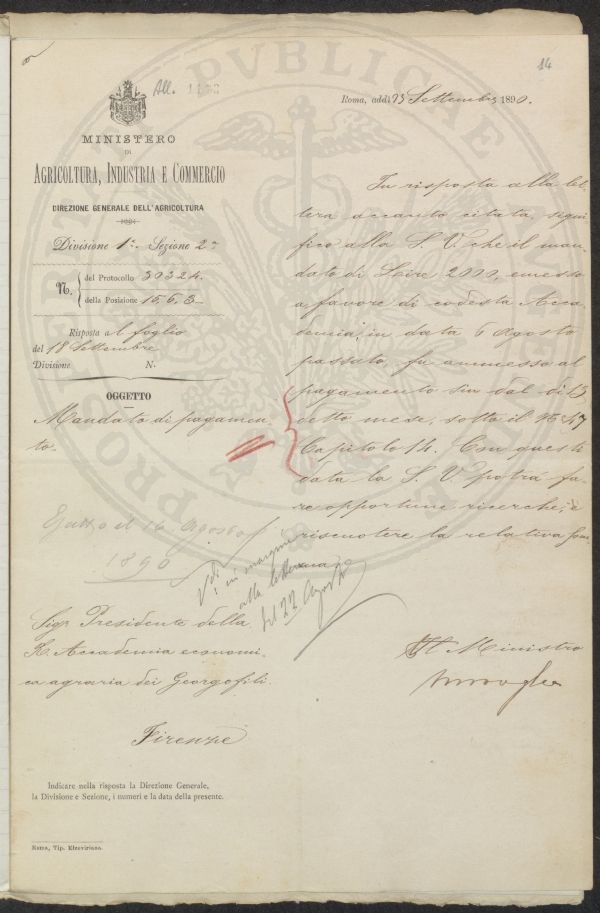 14
All. 1133
Roma, addì 23 Settembre 1890.
MINISTERO
DI
AGRICOLTURA, INDUSTRIA E COMMERCIO
DIREZIONE GENERALE DELL'AGRICOLTURA
Divisione 1ª Sezione 2ª
N. del Protocollo 30324
della Posizione 15.6.3
Risposta al foglio
del 18 Settembre
Divisione N.
OGGETTO
Mandato di pagamen-
to.
In risposta alla let-
tera accanto citata, signi
fico alla S. V. che il man-
dato di Lire 2000, emesso
a favore di codesta Acca-
demia, in data 6 Agosto
passato, fu ammesso al
pagamento sin dal dì 13
detto mese, sotto il Nº 47
Capitolo 14. Con questi
data la S. V. potrà fa-
re opportune ricerche, e
riscuotere la relativa som-
ma.
Esatto il 16 Agosto
1890
Vdi in margine
alla lettera
del 22 Agosto
Il Ministro
Sigr Presidente della
R. Accademia economi-
ca agraria dei Georgofili.
Firenze
Indicare nella risposta la Direzione Generale,
la Divisione e Sezione, i numeri e la data della presente.
Roma, Tip. Elzeviriana.